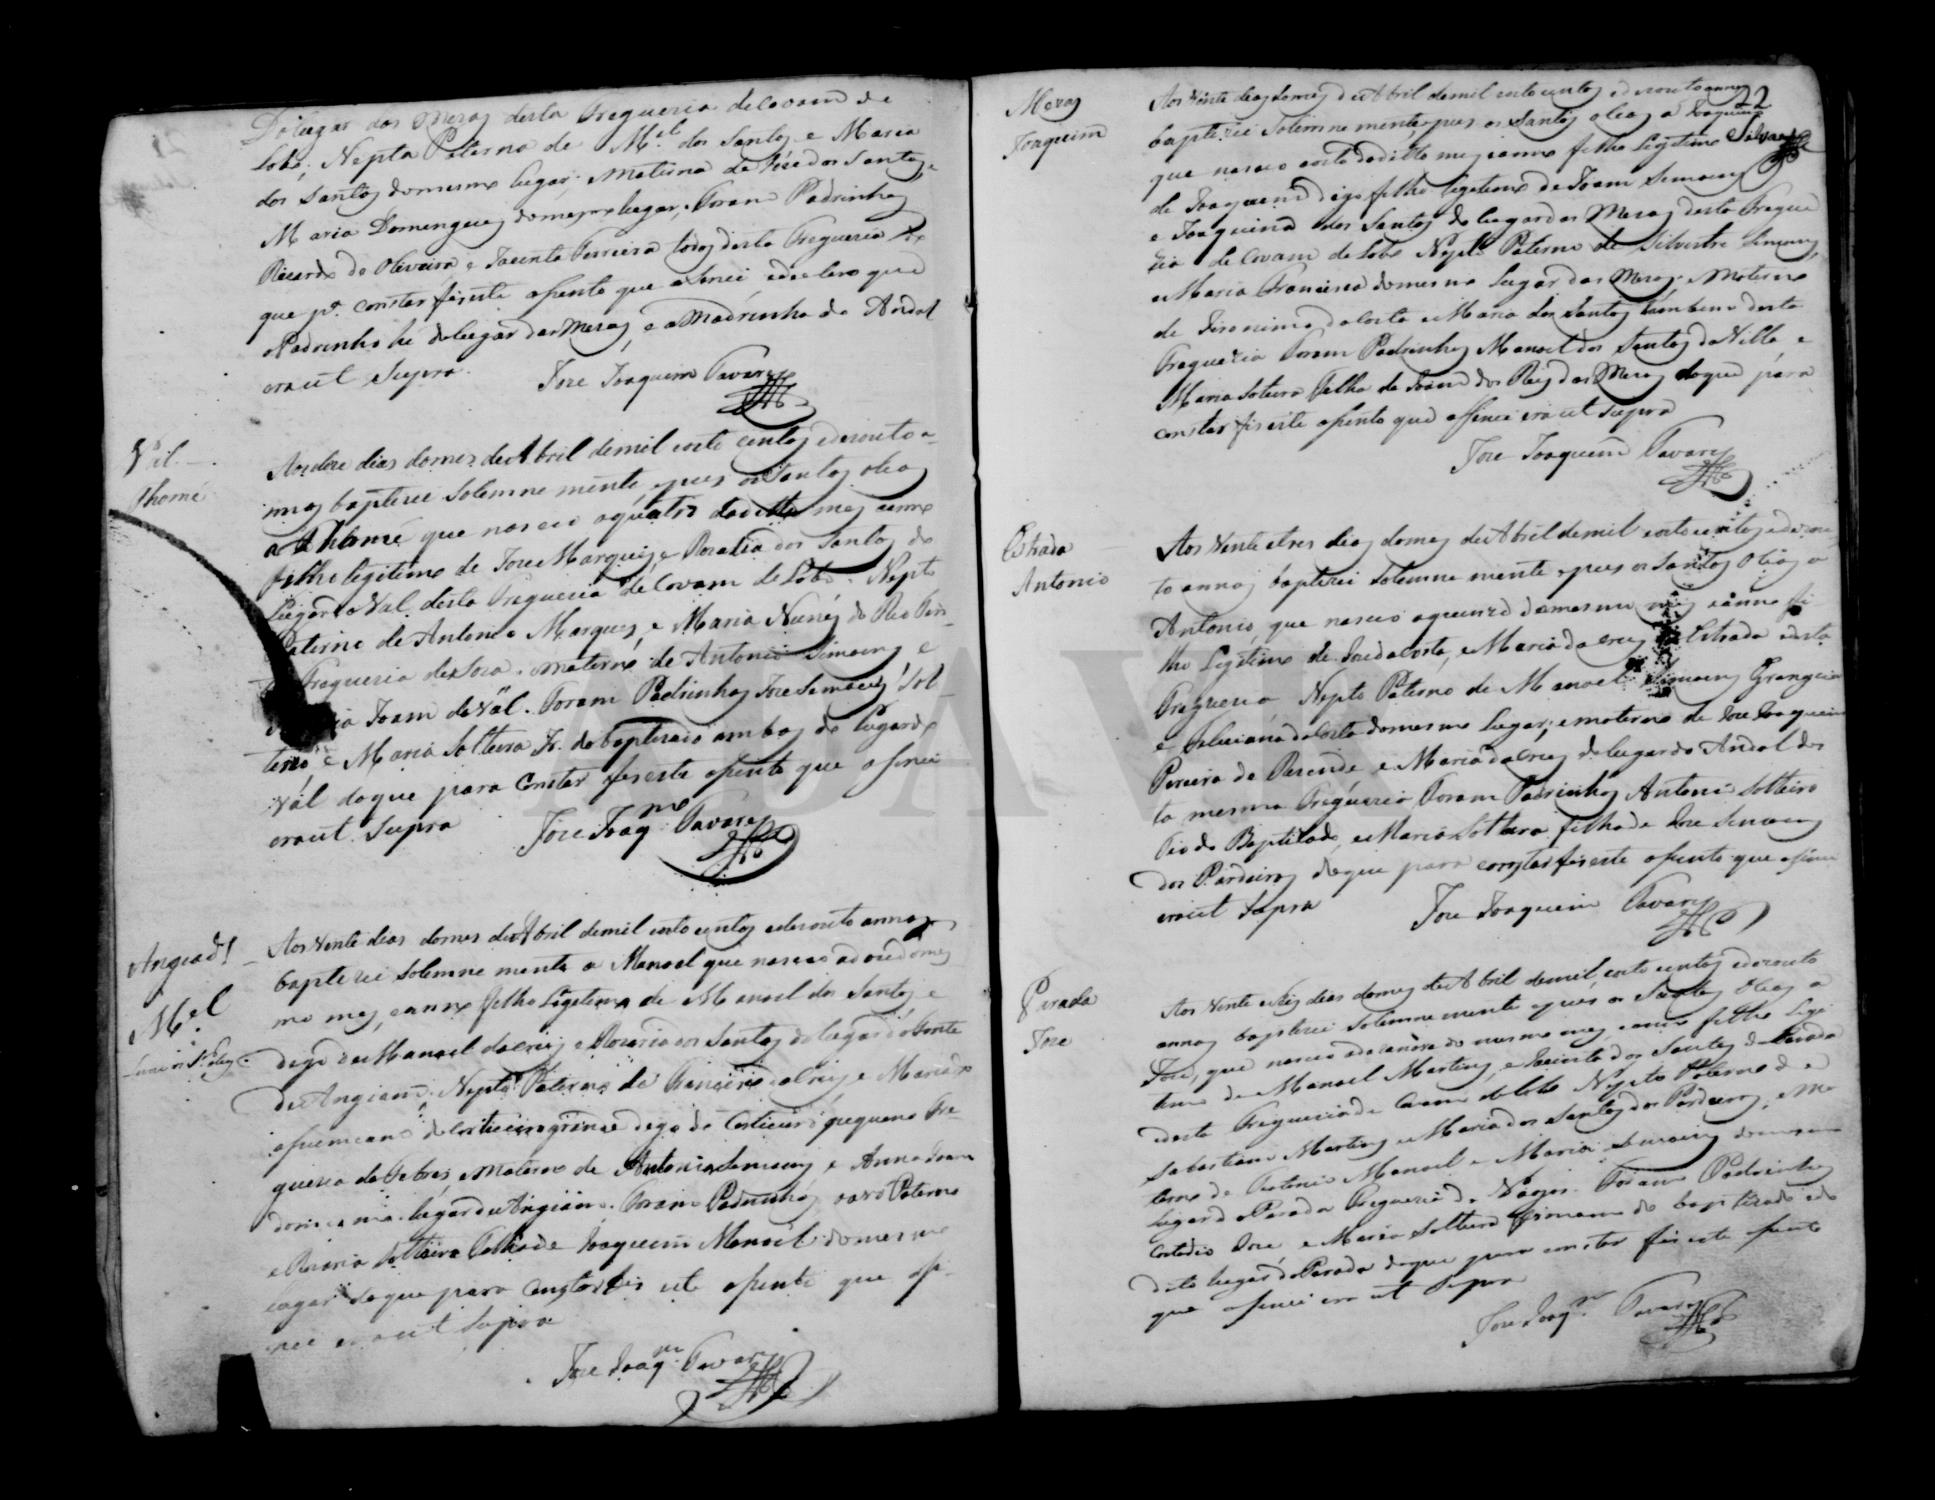 Do lugar das Mesas desta Freguezia de Covam de
Lobo, Nepta Paterna de M.el dos Santos e Maria
dos Santos do mesmo lugar; Materna de José dos Santos, e
Maria Domingues do mesmo lugar. Foram Padrinhos
Ricardo de Oliveira e Jacinta Ferreira todos desta Freguezia de
que p.a constar fis este asento que asinei, e declaro que o
Padrinho hé do lugar das Mesas, e a Madrinha do Andal
era ut Supra.
Joze Joaquim Tavares
Val.
Thomé
Aos doze dias do mes de Abril de mil oito centos e dezouto a-
nnos baptizei Solemne mente, e pus os Santos oleos
a Thomé que nasceo a quatro do ditto mes e anno
filho legitimo de Joze Marques, e Rosalia dos Santos do
Lugar do Val desta Freguezia de Covam de Lobo. Nepto
Paterno de Antonio Marques, e Maria Nunes do Rio
Freguezia de Soza. Materno de Antonio Simoens e
Joam do Val. Foram Padrinhos Joze Simoens Sol-
teiro e Maria Solteira Ir. do baptizado ambos do lugar do
Val do que para Constar fis este asento que asinei
era ut Supra
Joze Joaq.m Tavares
Angiad.
M.el
Aos Vinte dias do mes de Abril de mil oito centos e dezouto annos
baptizei Solemne mente a Manoel que nasceo a doze do mes
mo mes, e anno filho Legitimo de Manoel dos Santos e
digo de Manoel da Cruz e Rosaria dos Santos do lugar da Fonte
de Angiam, Nepto Paterno de Francisco da Cruz, e Maria
de Corticeiro grande digo de Corticeiro pequeno Fre
guezia de Febres, e Materno de Antonio Simoens e Anna Joam
do mesmo lugar de Angiam. Foram Padrinhos o avô Paterno
e Rosaria Solteira Filha de Joaquim Manoel do mesmo
lugar do que para Constar fis este asento que asi-
nei era ut Supra
Joze Joaq.m Tavares
22
Silva
Mesas
Joaquim
Aos Vinte dias do mes de Abril de mil oito centos e dezouto annos
baptizei Solemne mente e pus os Santos oleos a Joaquim
que nasceo a oito do ditto mes e anno filho Legitimo
de Joaquim digo filho legitimo de Joam Simoens
e Joaquina dos Santos do lugar das Mesas desta Fregue
zia de Covam de Lobo Nepto Paterno de Silvestre Simoens,
e Maria Francisca do mesmo Lugar das Mesas; Materno
de Jeronimo da Costa e Maria dos Santos tambem desta
Freguezia Foram Padrinhos Manoel dos Santos da Villa e
Maria Solteira Filha de Joam dos Reys das Mesas do que para
constar fis este asento que asinei era ut Supra
Joze Joaquim Tavares
Estrada
Antonio
Aos Vinte e tres dias do mes de Abril de mil oito centos e dezou
to annos baptizei Solemne mente e pus os Santos Oleos a
Antonio, que nasceo a quinze do mesmo mes e anno fi
lho Legitimo de Joze da Costa, e Maria da Cruz da Estrada desta
Freguezia Nepto Paterno de Manoel Simoens Grangeia
e Feliciana da Costa do mesmo Lugar; e materno de Joze Joaquim
Pereira de Rezende e Maria da Cruz do lugar do Andal des
ta mesma Freguezia Foram Padrinhos Antonio Solteiro
Tio do Baptizado, e Maria Solteira filha de Joze Simoens
dos Pardeiros do que para constar fis este asento que asinei
era ut Supra
Joze Joaquim Tavares
Parada
Joze
Aos Vinte e seis dias do mes de Abril de mil oito centos e dezouto
annos baptizei Solemne mente e pus os Santos Oleos a
Joze, que nasceo a do mesmo mes e anno filho Legi
timo de Manoel Martins, e Jacinta dos Santos da Parada
desta Freguezia de Covam de Lobo Nepto Paterno de
Sabastiam Martins e Maria dos Santos dos Pardeiros, e Ma
terno de Antonio Manoel e Maria Simoens do mesmo
lugar da Parada Freguezia de Vagos. Foram Padrinhos
Custodio Joze e Maria Solteira Irmam do baptizado do
dito lugar da Parada do que para constar fis este asento
que asinei era ut Supra
Joze Joaq.m Tavares
ADAVR